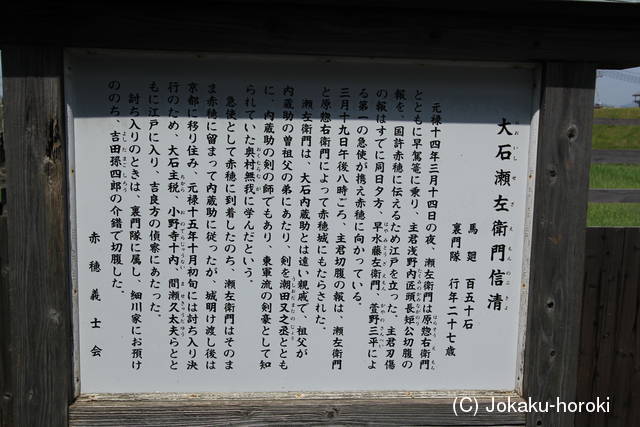 大石瀬左衛門信清
おおいしせざえもんのぶきよ
馬廻 百五十石
裏門隊 行年二十七歳
元禄十四年三月十四日の夜、瀬左衛門は原惣右衛門
とともに早駕篭に乗り、主君浅野内匠頭長矩公切腹の
報を、国許赤穂に伝えるため江戸を立った。主君刃傷
の報はすでに同日夕方、早水藤左衛門、萱野三平によ
る第一の急使が携え赤穂に向かっている。
三月十九日午後八時ごろ、主君切腹の報は、瀬左衛門
と原惣右衛門によって赤穂城にもたらされた。
瀬左衛門は、大石内蔵助とは遠い親戚で、祖父が
内蔵助の曽祖父の弟にあたり、剣を潮田又之丞ととも
に、内蔵助の剣の師でもあり、東軍流の剣豪として知
られていた奥村無我に学んだという。
急使として赤穂に到着したのち、瀬左衛門はそのま
ま赤穂に留まって内蔵助に従ったが、城明け渡し後は
京都に移り住み、元禄十五年十月初旬には討ち入り決
行のため、大石主税、小野寺十内、間瀬久太夫らとと
もに江戸に入り、吉良方の偵察にあたった。
討ち入りのときは、裏門隊に属し、細川家にお預け
ののち、吉田孫四郎の介錯で切腹した。
赤穂義士会
(C) Jokaku-horoki